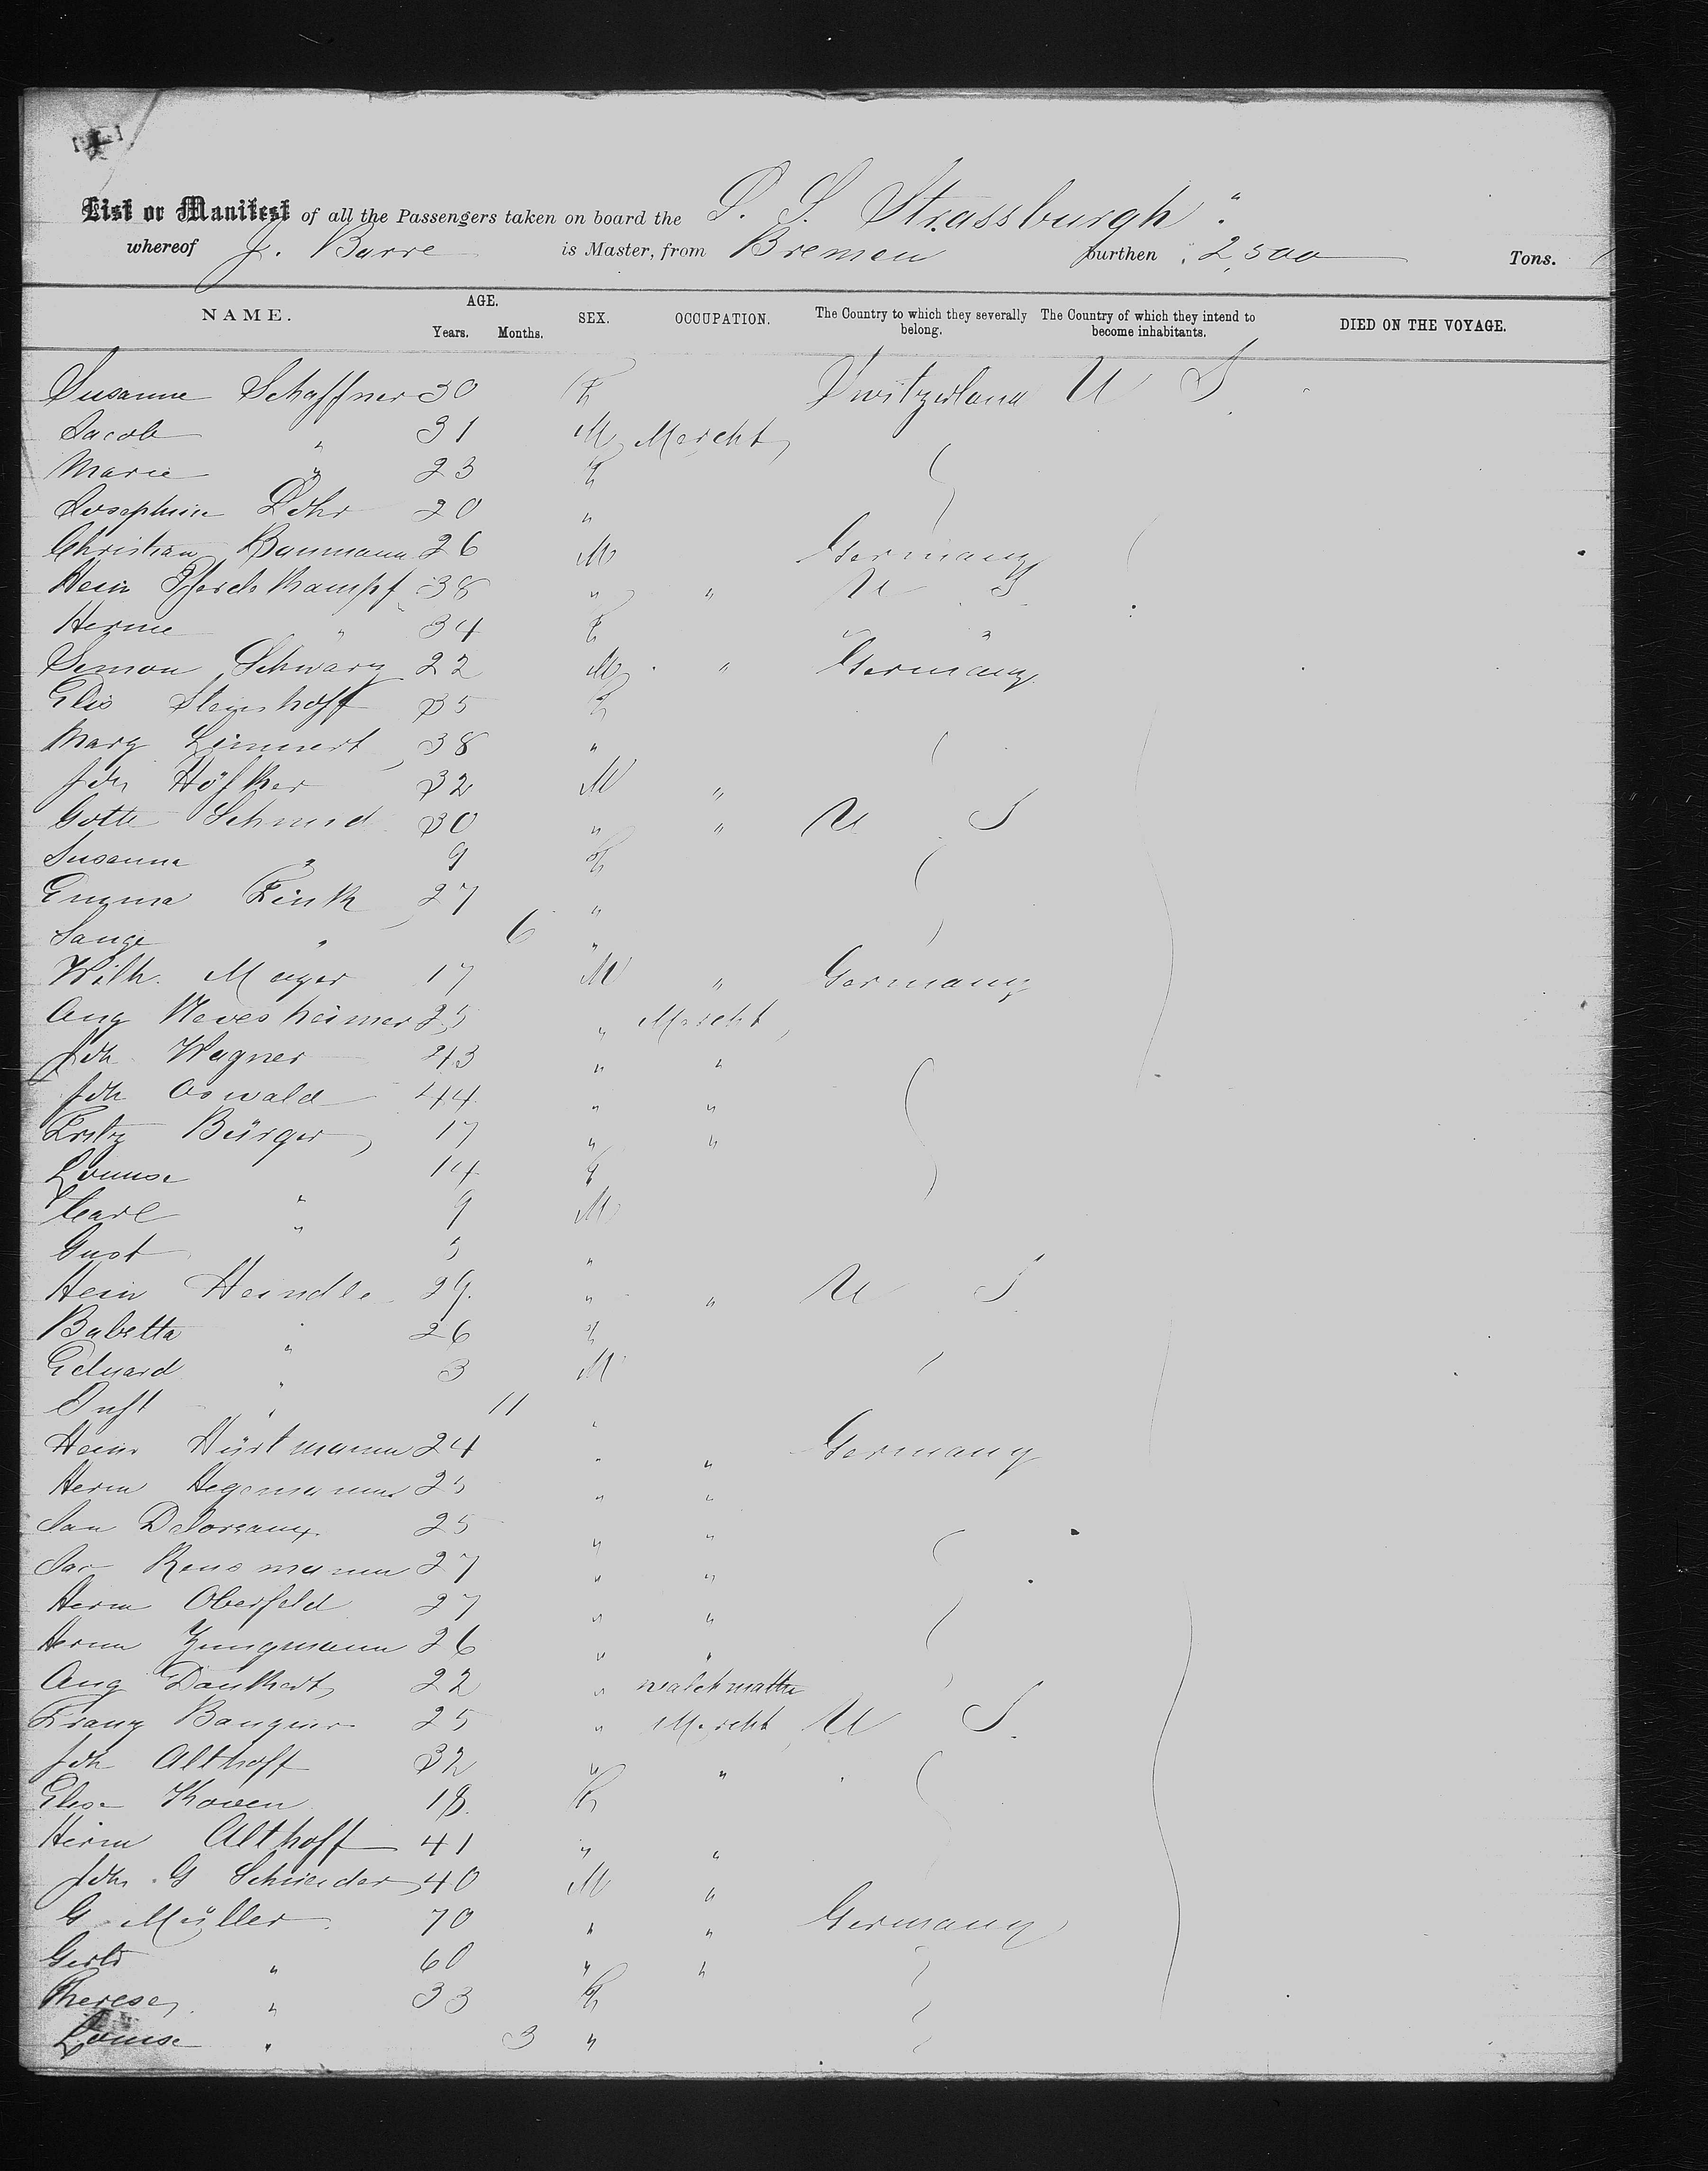 List or Manifest of all the Passengers taken on board the S. S. Strassburgh "
whereof J. Barre is Master, from Bremen burthen 2,500 Tons.
NAME. AGE. Years. Months. SEX. OCCUPATION. The Country to which they severally belong. The Country of which they intend to become inhabitants. DIED ON THE VOYAGE.
Susanne Schaffner 30 F Switzerland U S
Jacob " 31 M Mercht
Marie " 23 F
Josephine Löhr 20 "
Christian Baumann 26 M Germany
Hein Pferdekampf 38 " " U S
Herme " 34 F " "
Simon Schwarz 22 M " Germany
Elis Steinhoff 35 F
Marg Limmert 38 "
Joh Höfker 32 M "
Gotte Schmid 30 " " U S
Susanna " 9 F
Emma Fink 27 "
" 6 "
Wilh. Mayer 17 M " Germany
Aug 25 " Mercht
Joh Wagner 43 " "
Joh Oswald 44 " "
Fritz Bürger 17 " "
Louise 14 F
Carl " 9 M
Gust " 5 "
Hein Heindle 29 " " U S
Babetta " 26 F
Eduard " 3 M
" 11 "
Heinr Hürtmann 24 " " Germany
Herm Hegemann 25 " "
Jan 25 " "
Jac Rensmann 27 " "
Herm Oberfeld 27 " "
Herm Jungmann 26 " "
Aug Dankhert 22 "
Franz 25 " Mercht U S
Joh Althoff 32 " "
Elise Koven 18 F
Herm Althoff 41 " "
Joh G Schneider 40 M "
G Müller 70 " " Germany
" 60 " "
Therese " 33 F
Louise " 3 "